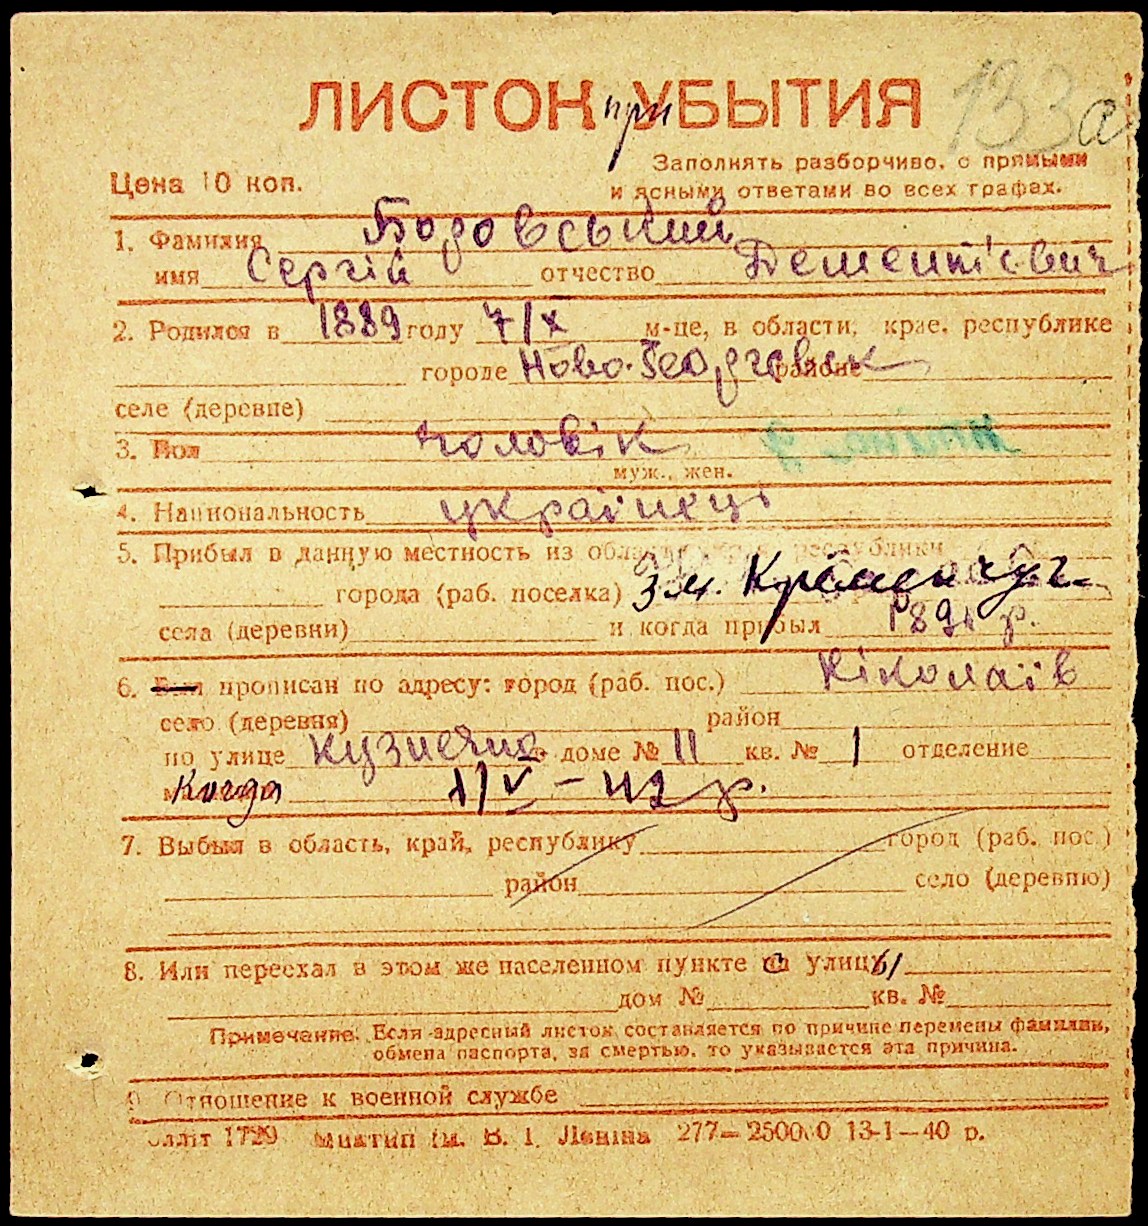 ЛИСТОК при УБЫТИЯ 133а
Заполнять разборчиво, с прямыми
Цена 10 коп. и ясными ответами во всех графах.
1. Фамилия Боровський
имя Сергій отчество Дементієвич
2. Родился в 1889 году 7/X м-це, в области, крае, республике
городе Ново-Георгевск районе
селе (деревне)
3. Пол чоловік
муж., жен.
4. Национальность українець
5. Прибыл в данную местность из области, края, республики
города (раб. поселка) З м. Кременчуг
села (деревни) и когда прибыл р.
6. Был прописан по адресу: город (раб. пос.) Ніколаїв
село (деревня) район
по улице Кузнечна доме № 11 кв. № 1 отделение
Когда 1/V – 42 р.
7. Выбыл в область, край, республику город (раб. пос.)
район село (деревню)
8. Или переехал в этом же населенном пункте с улицы
дом № кв. №
Примечание. Если адресный листок составляется по причине перемены фамилии,
обмена паспорта, за смертью, то указывается эта причина.
9. Отношение к военной службе
Оллiт 1729 Миктип ім. В. І. Леніна 277—250000 13-I—40 р.